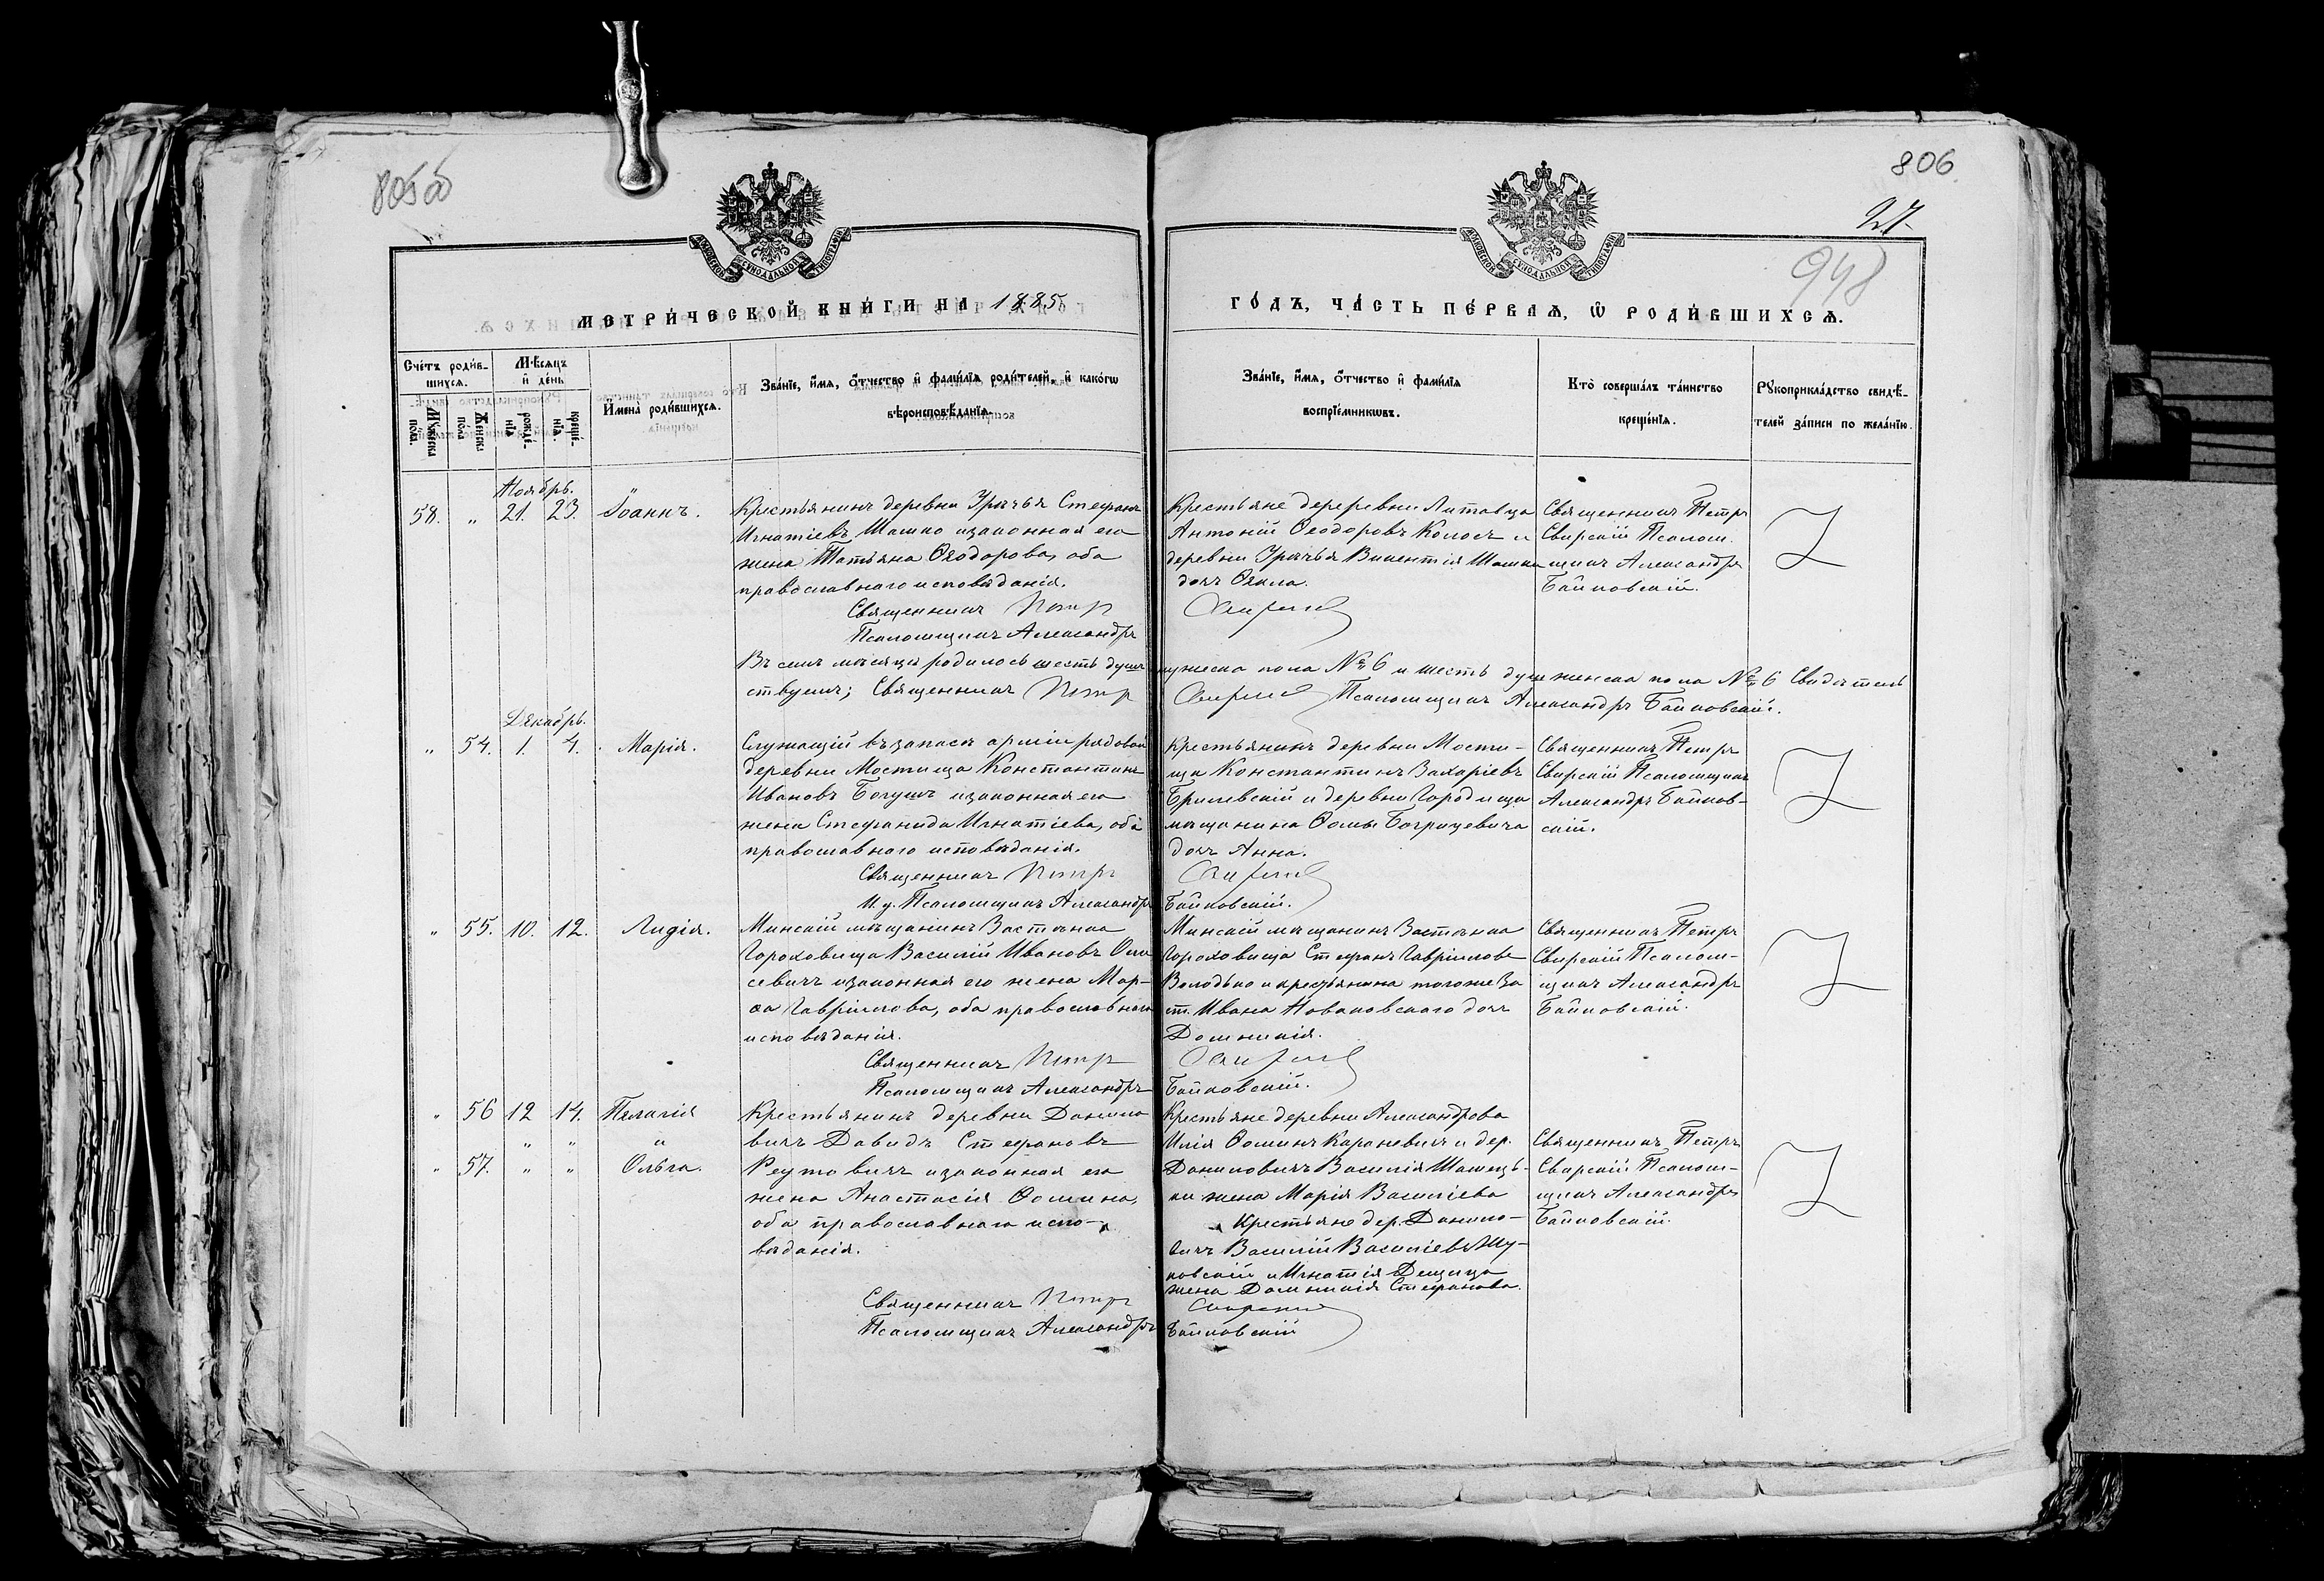 805об
806
27.
948
МЕТРИЧЕСКОЙ КНИГИ НА 1885
ГОДЪ, ЧАСТЬ ПЕРВАЯ, Ѿ РОДИВШИХСЯ.
Счетъ родив-
шихся.
Мѣсяцъ
и день
Мужеска
пола.
Женска
пола
рожде-
нія
креще-
нія.
Имена родившихся.
Званіе, имя, отчество и фамилія родителей, и какогѡ
вѣроисповѣданія.
Званіе, имя, отчество и фамилія
воспріемникѡвъ.
Кто совершалъ таинство
крещенія.
Рукоприкладство свидѣ-
телей записи по желанію.
Ноябрь.
58. „ 21. 23. Іоаннъ.
Крестьянинъ деревни Урѣчья Стефанъ
Игнатіевъ Машко изаконная его
жена Татьяна Ѳеодорова, оба
православнаго исповѣданія.
Священникъ Петръ
Псаломщикъ Александръ
Крестьяне дереревни Литавца
Антоній Ѳеодоровъ Колосъ и
деревни Урѣчья Викентія Машки
дочь Ѳекла.
Свирскій
Священникъ Петръ
Свирскій Псалом-
щикъ Александръ
Байковскій.
Въ семъ мѣсяцѣ родилось шесть душъ мужеска пола № 6 и шесть душъ женска пола № 6 Свидѣтель
ствуемъ; Священникъ Петръ Свирскій Псаломщикъ Александръ Байковскій.
Декабрь.
„ 54. 1. 4. Марія.
Служащій въ запасѣ арміи рядовой
деревни Мостища Константинъ
Ивановъ Богушъ изаконная его
жена Стефанида Игнатіева, оба
православнаго исповѣданія.
Священникъ Петръ
И. д. Псаломщикъ Александръ
Крестьянинъ деревни Мости-
ща Константинъ Захаріевъ
Брилевскій и деревни Городища
мѣщанина Ѳомы Богрицевича
дочь Анна.
Свирскій
Байковскій.
Священникъ Петръ
Свирскій Псаломщикъ
Александръ Байков-
скій.
„ 55. 10. 12. Лидія.
Минскій мѣщанинъ Застѣнка
Гороховища Василій Ивановъ
севичъ изаконная его жена Мар-
ѳа Гавріилова, оба православнаго
исповѣданія.
Священникъ Петръ
Псаломщикъ Александръ
Минскій мѣщанинъ Застѣнка
Гороховища Стефанъ Гавріиловъ
Володько и крестьянина тогоже За
ст. Ивана Новаковскаго дочь
Доминикія.
Свирскій
Байковскій.
Священникъ Петръ
Свирскій Псалом-
щикъ Александръ
Байковскій.
„ 56 12 14. Пелагія
„ „ „
„ 57. „ „ Ольга.
Крестьянинъ деревни Данило
вичъ Давидъ Стефановъ
Реутовичъ изаконная его
жена Анастасія Ѳомина,
оба православнаго испо-
вѣданія.
Священникъ Петръ
Псаломщикъ Александръ
Крестьяне деревни Александрова
Илія Ѳоминъ Караневичъ и дер.
Даниловичъ Василія
ки жена Марія Василіева
Крестьяне дер. Данило-
вичъ Василій Василіевъ Жу-
ковскій и Игнатія Дещица
жена Доминикія Стефанова.
Свирскій
Байковскій
Священникъ Петръ
Свирскій Псалом-
щикъ Александръ
Байковскій.